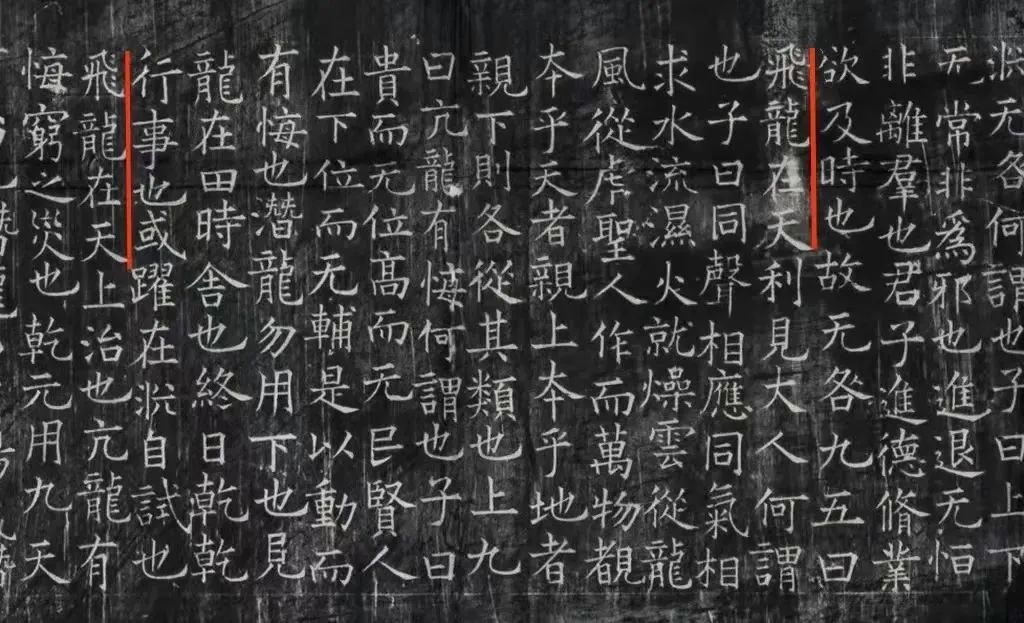 淵无咎何謂也子曰上下
无常非爲邪也進退无恒
非離羣也君子進德脩業
欲及時也故无咎九五曰
飛龍在天利見大人何謂
也子曰同聲相應同氣相
求水流濕火就燥雲從龍
風從虎聖人作而萬物覩
本乎天者親上本乎地者
親下則各從其類也上九
曰亢龍有悔何謂也子曰
貴而无位高而无民賢人
在下位而无輔是以動而
有悔也潛龍勿用下也見
龍在田時舍也終日乾乾
行事也或躍在淵自試也
飛龍在天上治也亢龍有
悔窮之災也乾元用九天